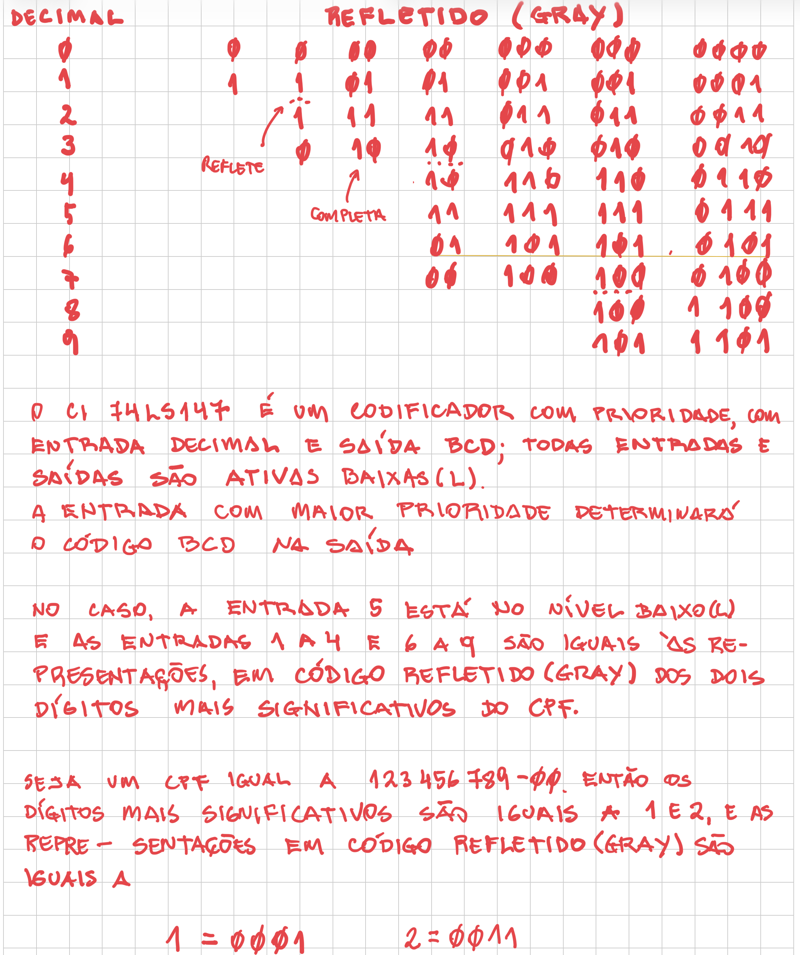 DECIMAL REFLETIDO (GRAY)
0 0 0 00 00 000 000 0000
1 1 1 01 01 001 001 0001
2 1 11 11 011 011 0011
3 0 10 10 010 010 0010
4 10 110 110 0110
5 11 111 111 0111
6 01 101 101 0101
7 00 100 100 0100
8 100 1100
9 101 1101
REFLETE
COMPLETA
O CI 74LS147 É UM CODIFICADOR COM PRIORIDADE, COM
ENTRADA DECIMAL E SAÍDA BCD; TODAS ENTRADAS E
SAÍDAS SÃO ATIVAS BAIXAS (L).
A ENTRADA COM MAIOR PRIORIDADE DETERMINARÁ
O CÓDIGO BCD NA SAÍDA
NO CASO, A ENTRADA 5 ESTÁ NO NÍVEL BAIXO (L)
E AS ENTRADAS 1 A 4 E 6 A 9 SÃO IGUAIS ÀS RE-
PRESENTAÇÕES, EM CÓDIGO REFLETIDO (GRAY) DOS DOIS
DÍGITOS MAIS SIGNIFICATIVOS DO CPF.
SEJA UM CPF IGUAL A 123456789-00. ENTÃO OS
DÍGITOS MAIS SIGNIFICATIVOS SÃO IGUAIS A 1 E 2, E AS
REPRE- SENTAÇÕES EM CÓDIGO REFLETIDO (GRAY) SÃO
IGUAIS A
1 = 0001 2 = 0011